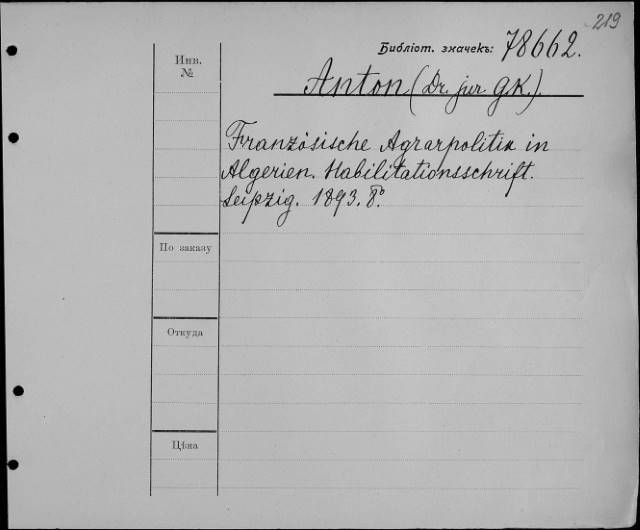 219
Библіот. значекъ: 78662.
Инв.
№
Anton (Dr. jur. G.K.)
Französische Agrarpolitik in
Algerien. Habilitationsschrift.
Leipzig. 1893. 8°.
По заказу
Откуда
Цѣна